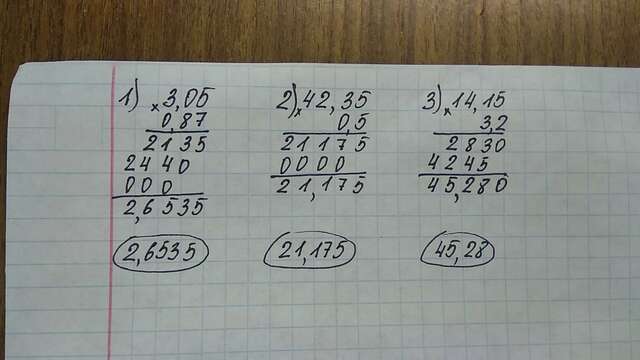 1) × 3,05
0,87
2135
2440
000
2,6535
2,6535
2) × 42,35
0,5
21175
0000
21,175
21,175
3) × 14,15
3,2
2830
4245
45,280
45,28